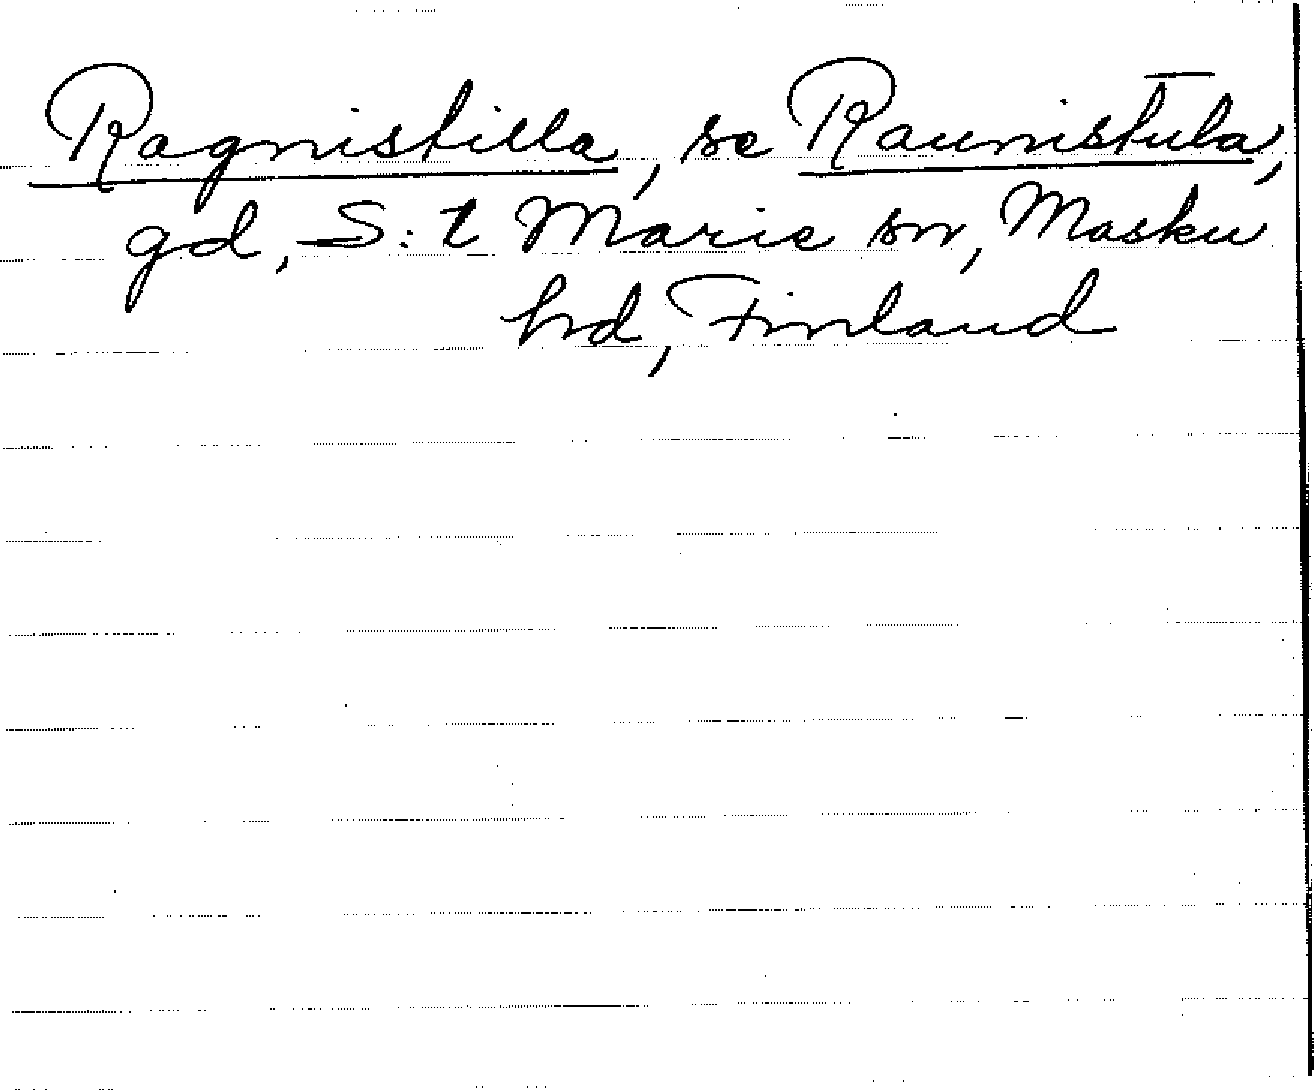 Ragnistilla, se Raunistula,
gd, S:t Marie sn, Masku
hd, Finland